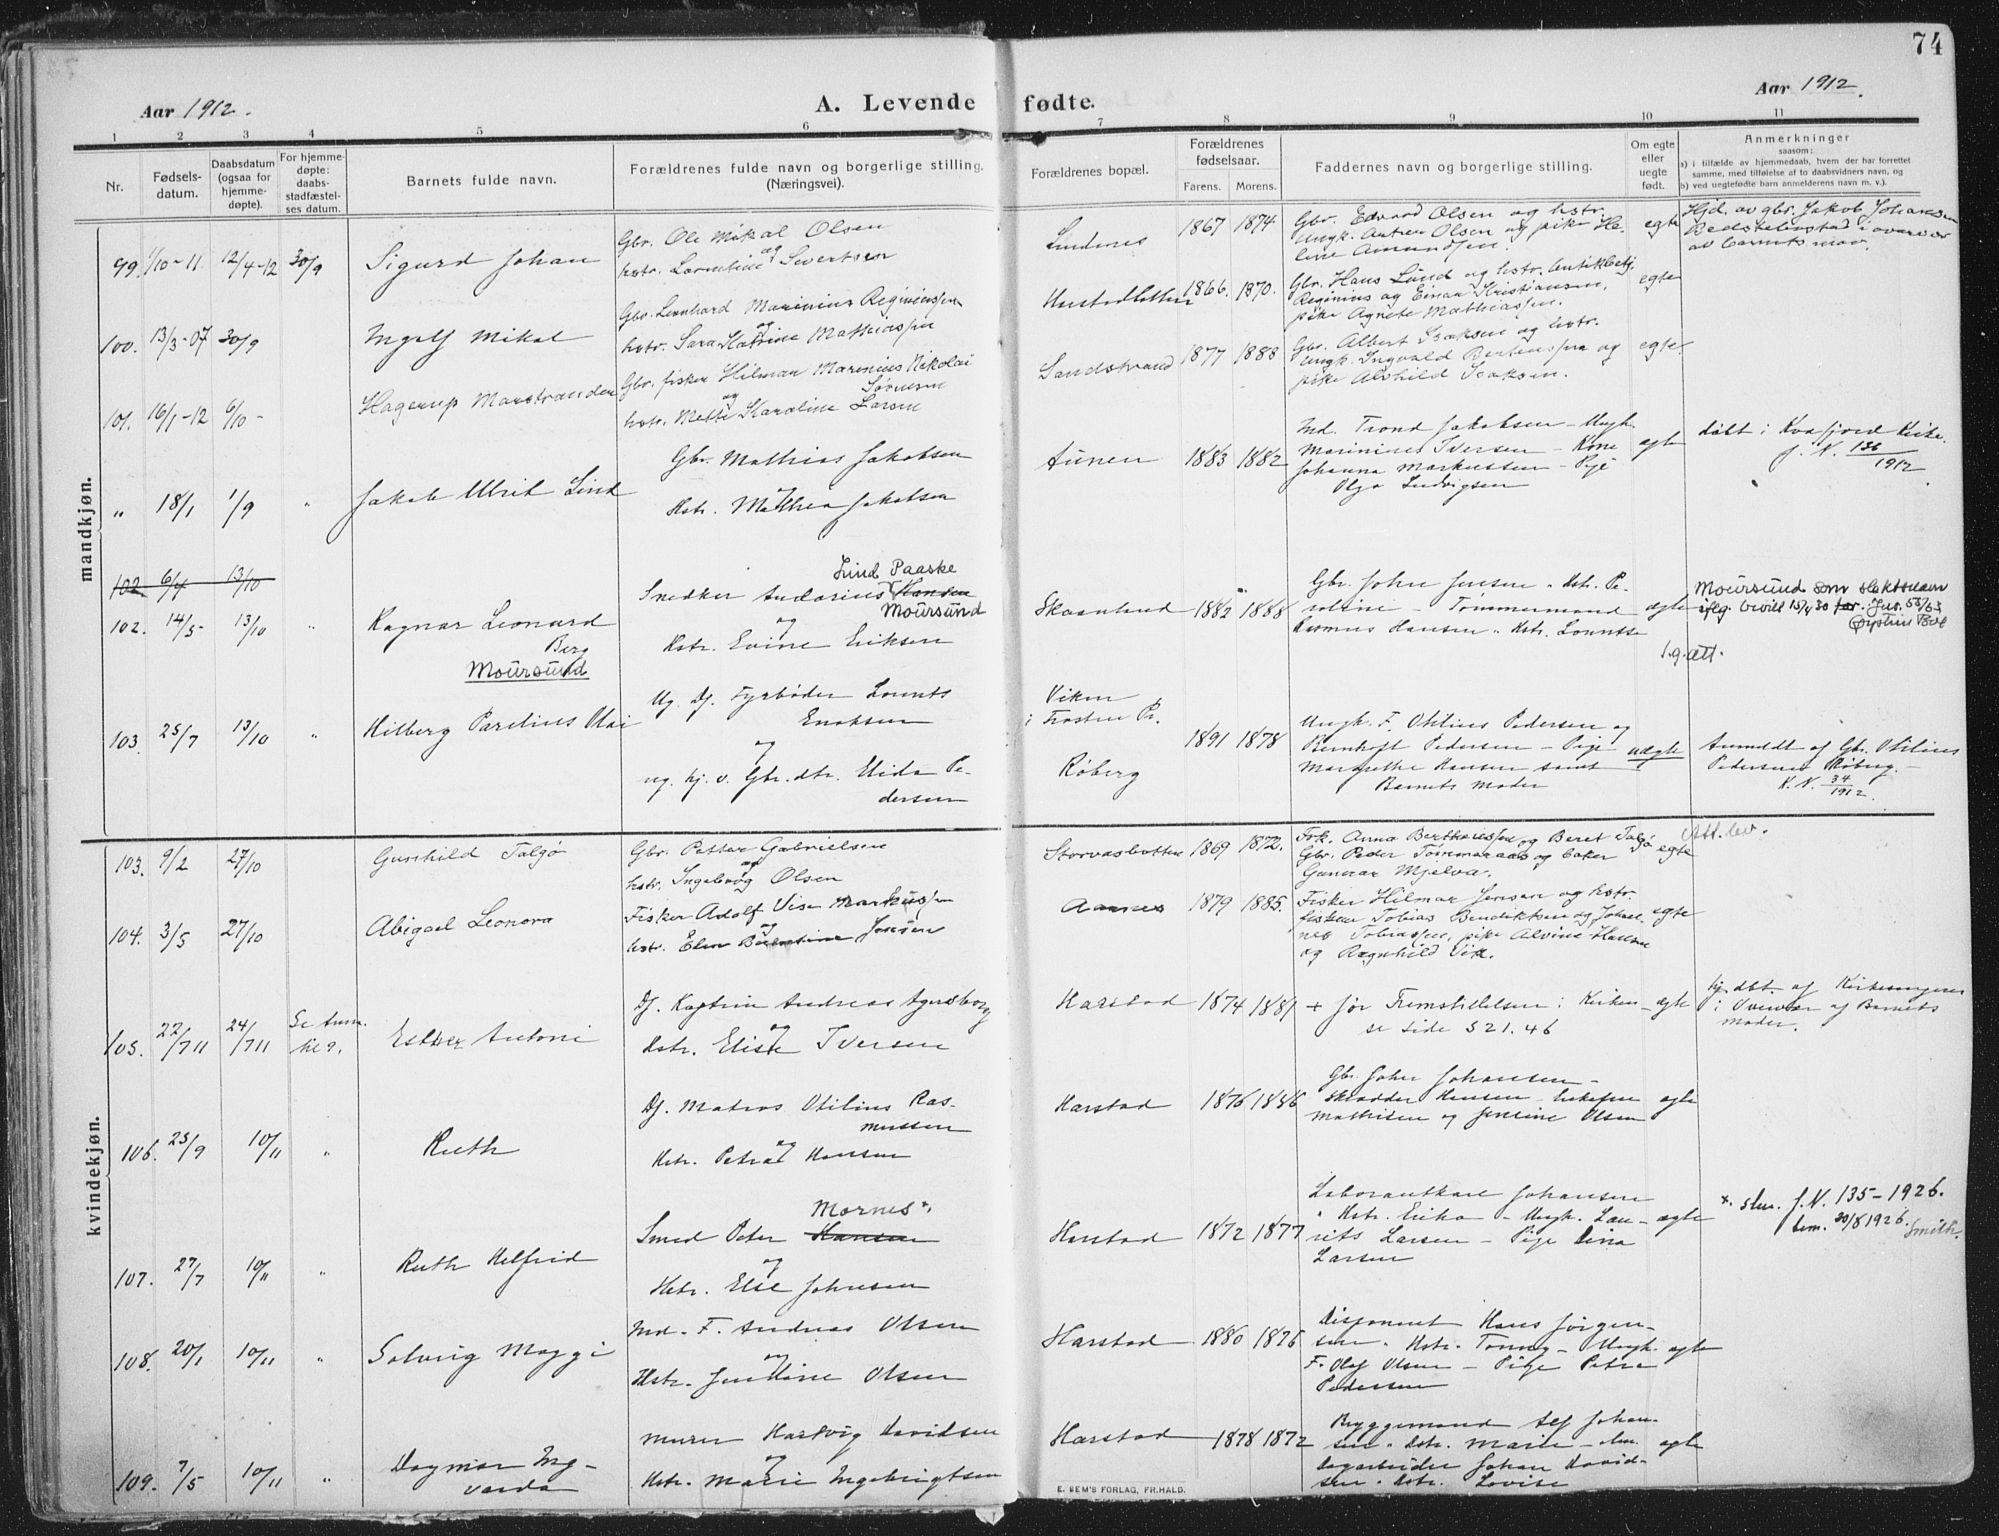 74
Aar 1912.
A. Levende fødte.
Aar 1912.
1 2 3 4 5 6 7 8 9 10 11
Nr.
Fødsels-
datum.
Daabsdatum
(ogsaa for
hjemme-
døpte).
For hjemme-
døpte:
daabs-
stadfæstel-
ses datum.
Barnets fulde navn.
Forældrenes fulde navn og borgerlige stilling.
(Næringsvei).
Forældrenes bopæl.
Forældrenes
fødselsaar.
Farens. Morens.
Faddernes navn og borgerlige stilling.
Om egte
eller
uegte
født.
Anmerkninger
saasom:
a) i tilfælde av hjemmedaab, hvem der har forrettet
samme, med tilføielse af to daabsvidners navn, og
b) ved uegtefødte barn anmelderens navn m. v.).
mandkjøn.
99. 1/10-11. 12/4-12 30/9 Sigurd Johan
Gbr. Ole Mikal Olsen
og
hstr. Sivertsen
1867 1874
Gbr. Edvard Olsen og hstr.
Ungk. Olsen og pike He-
line Amundsen.
egte
Hjd. av gbr. Jakob Johansen
av barnets mor.
100. 13/3-07 30/9 Ingolf Mikal
Gbr. Leonhard Marinius Reginiussen
og
hstr. Sara Katrine Mathiassen
1866. 1870.
Gbr. Hans Lund og hstr.
Reginius og Einar Kristiansen,
pike Agnete Mathiassen.
egte
101. 16/1-12 6/10 - Hagerup Marstrander
Gbr. fisker Hilmar Marinius Nikolai
Sørensen
og
hstr. Mette Karoline Larsen
Sandstrand 1877 1888
Gbr. Albert Isaksen og hstr.
Ungk. Ingvald Bertheussen og
pike Alvhild Isaksen.
egte.
" 18/1 1/9 " Jakob Ulrik Lind
Gbr. Mathias Jakobsen
og
Hstr. Mathea Jakobsen
Aunen 1883 1882
Md. Trond Jakobsen - Ungk.
Marinius Iversen - Kone
Johanna Markussen - Pige
Olga Ludvigsen
egte
døbt i Kvæfjord Kirke.
J. N. 130/1912
102. 6/4 13/10
102. 14/5- 13/10 " Ragnar Leonard
Berg
Moursund
Lind Paaske
Snedker Andorius Hansen
Moursund
og
Hstr. Evine Eriksen
Skaanland 1882 1888
Gbr. John Jensen " Hstr. Pe-
roline - Tømmermand
Rasmus Hansen " Hstr. Lorentse
egte
Moursund som slektsnavn
iflg. bevill 15/4 30 Jus. 58/63
Øystein Boe
1.g. att.
103. 25/7 13/10 " Hilberg Parelius Olai
Ug. Dj. Fyrbøder Lorents
Enoksen
og
ug. hj. v. Gbr. dtr. Elida Pe-
dersen
Viken
i Trosten Pr.
Røberg
1891 1878
Ungk. F. Otilius Pedersen og
Bernhoft Pedersen - Pige
Margrethe Hansen samt
Barnets Moder
uægte
Anmeldt af Gbr. Otilius
Pedersen Røberg. -
K. N. 34/1912.
kvindekjøn.
103. 9/2 27/10 Gunhild Talgø
Gbr. Petter Gabrielsen
og
hstr. Ingeborg Olsen
Storvasbotten 1869 1872.
Frk. Anna Bertheussen og Beret Talgø
Gbr. Peder Tømmeraas og baker
Gunnar Mjelva.
egte
Att. lev.
104. 3/5 27/10 Abigael Leonora
Fisker Adolf Vise Markussen
og
hstr. Elen Jensen
Aarnes 1879 1885.
Fisker Hilmar Jensen og hstr.
fiskerne Tobias Bendiktsen og Johan-
nes Tobiassen, pike Alvine Hansen
og Ragnhild Vik.
egte
105. 22/7 11 24/7 11 Se Anm.
Esther Antoni
Dj. Kaptein Andreas Agersborg
og
Hstr. Elise Iversen
Harstad 1874 1881
+ for Fremstillelsen i Kirken
se side 521. 46
egte
hj. dbt af Kirkesanger
i Overvær af Barnets
Moder.
106. 23/9 10/11 " Ruth
Dj. Matros Otilius Ras-
mussen
og
Hstr. Petra Hansen
Harstad 1876 1886
Gbr. John Johansen -
Skrædder Hansen -
Mathisen og Jentine Olsen
egte
107. 27/7 10/11 " Ruth Helfrid
Mornes x.
Smed Peter Hansen
og
Hstr. Else Johnsen
Harstad 1872 1877
Johansen
" Hstr. Erika - Ungk. Lau-
rits Larsen - Pige Lina
Larsen
egte
x. skr. J. N. 135-1926.
30/8 1926. Smith.
108. 20/1 10/11 " Solveig Maggi
Md. F. Andreas Olsen
og
Hstr. Jendine Olsen
Harstad 1880 1876
Disponent Hans Jørgen-
sen " Hstr. Tonny - Ungk.
F. Olaf Olsen - Pige Petra
Pedersen
egte
109. 7/5 10/11 " Dagmar Ing-
varda
Murer Hartvig Davidsen
og
Hstr. Marie Ingebrigtsen
Harstad 1878 1872
Byggemand Alf Johan-
sen " Hstr. Marie -
Dagarbeider Johan David-
sen " Hstr. Lovise
egte
E. SEM'S FORLAG, FR.HALD.